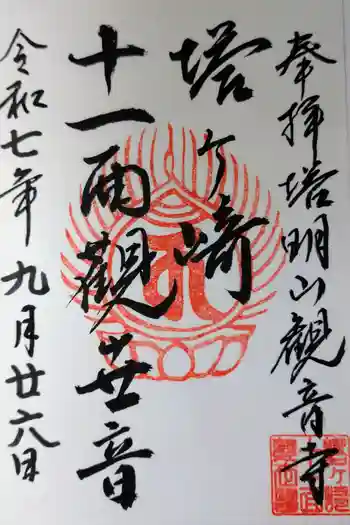 奉拝塔明山観音寺
塔ヶ崎
十一面観世音
令和七年九月廿六日